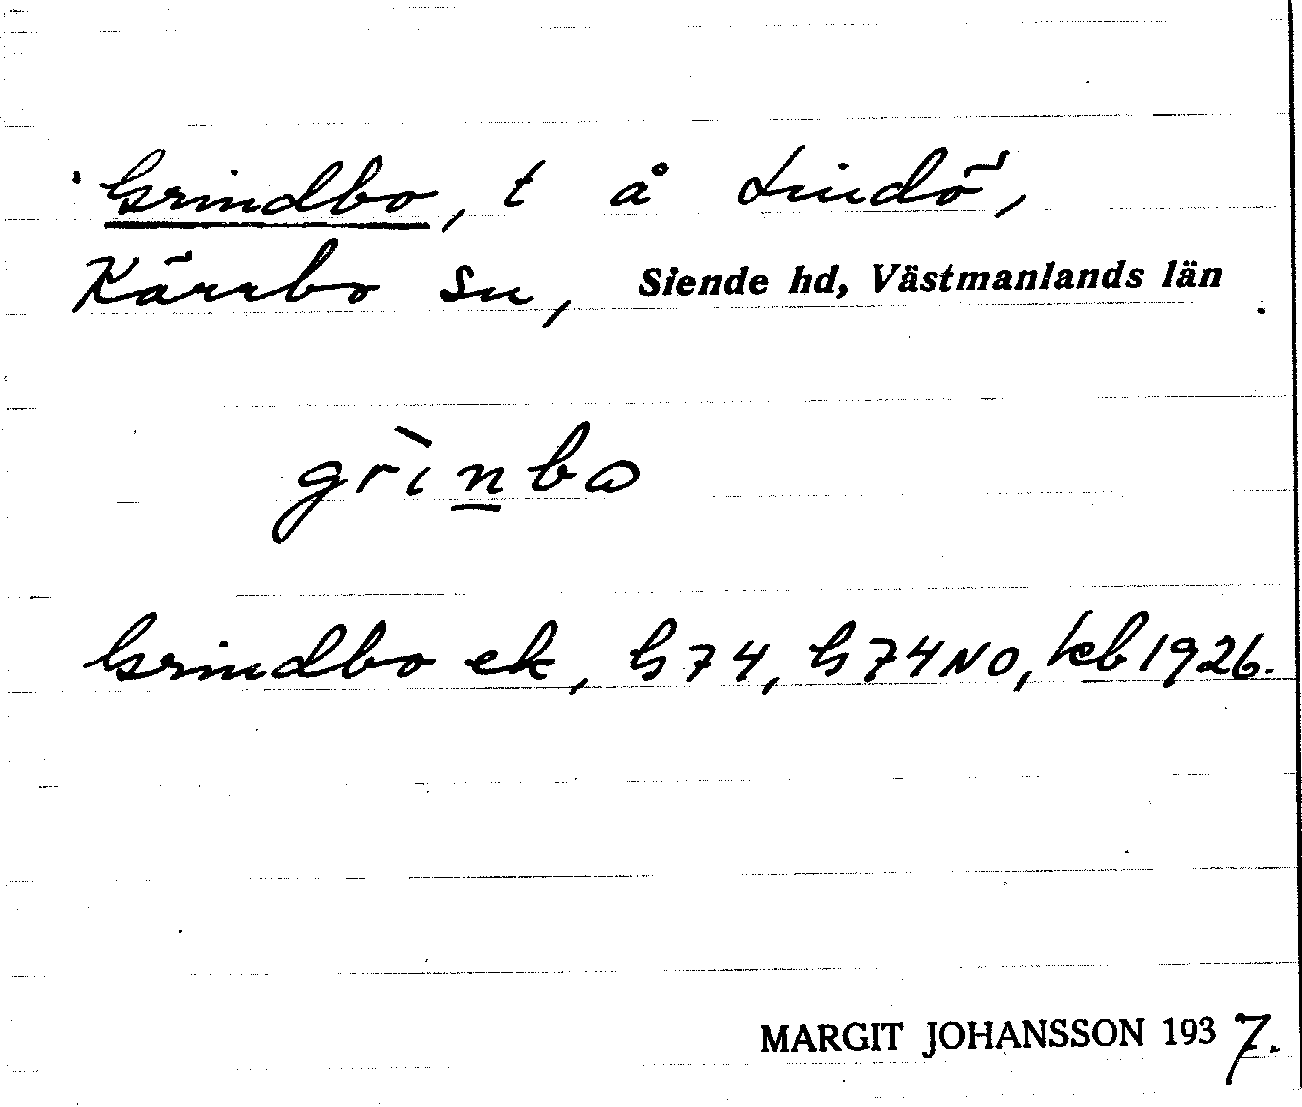 Grindbo, t å Lindö,
Kärrbo sn, Siende hd, Västmanlands län
grìnbω
Grindbo ek, G74, G74NO, kb 1926.
MARGIT JOHANSSON 1937.